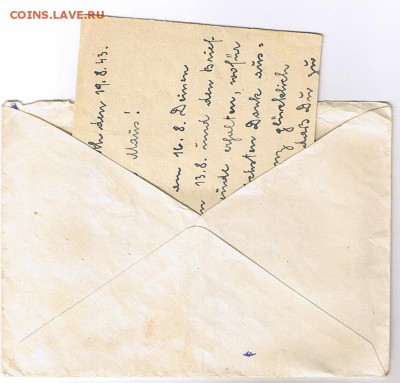 COINS.LAVE.RU
den 19.8.43.
Maus!
am 16.8. Deinen
13.8. und den Brief
erhalten, wofür
Dank aus=
glücklich
daß Du zu